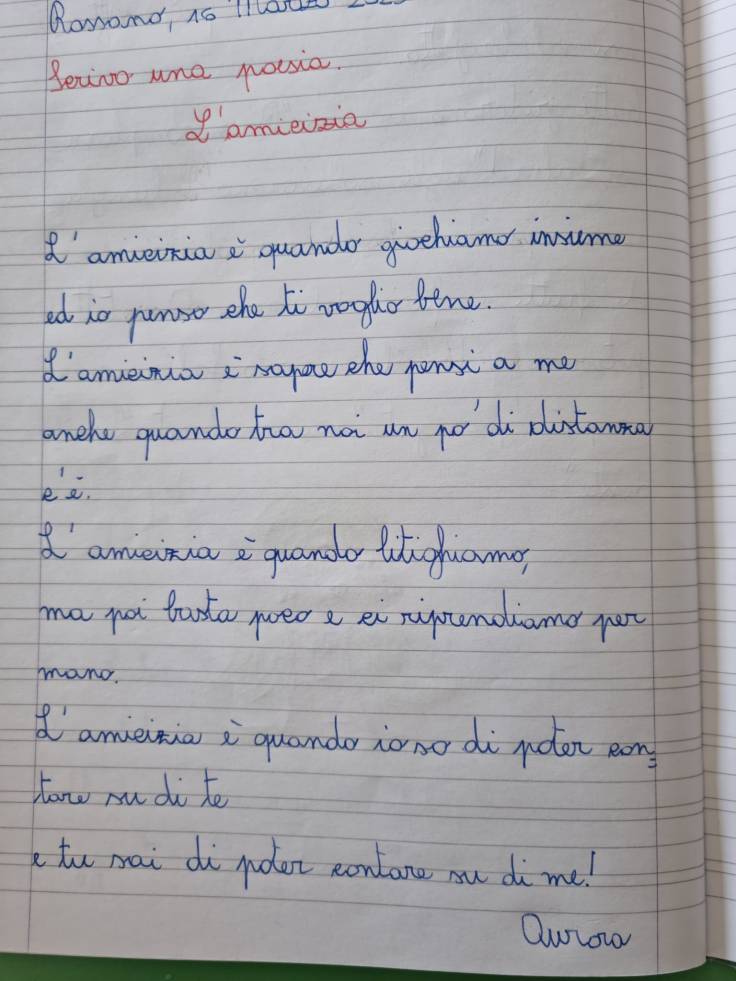 Rossano, 16 Marzo
Scrivo una poesia.
L'amicizia
L'amicizia è quando giochiamo insieme
ed io penso che ti voglio bene.
L'amicizia è sapere che pensi a me
anche quando tra noi un po' di distanza
c'è.
L'amicizia è quando litighiamo,
ma poi basta poco e ci riprendiamo per
mano.
L'amicizia è quando io so di poter con=
tare su di te
e tu sai di poter contare su di me!
Aurora